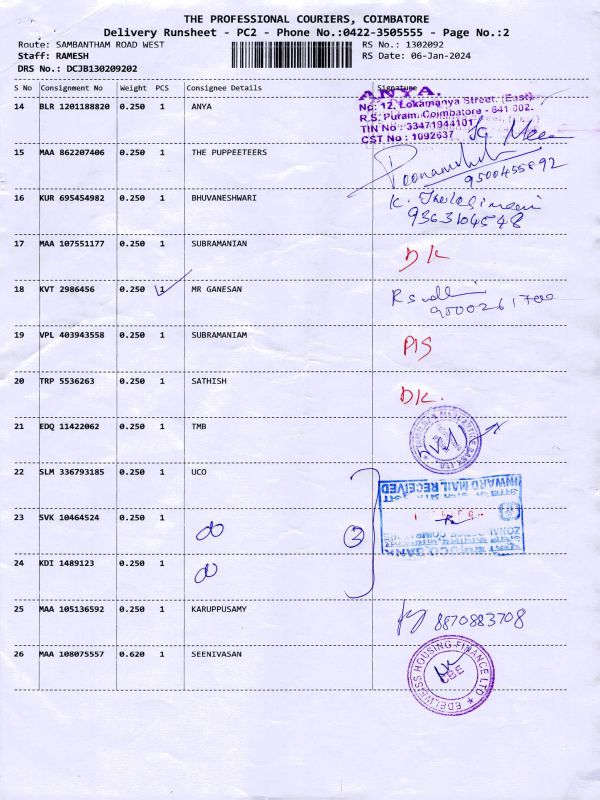 THE PROFESSIONAL COURIERS, COIMBATORE
Delivery Runsheet - PC2 - Phone No.:0422-3505555 - Page No.:2
Route: SAMBANTHAM ROAD WEST RS No.: 1302092
Staff: RAMESH RS Date: 06-Jan-2024
DRS No.: DCJB130209202
S No Consignment No Weight PCS Consignee Details Signature
14 BLR 1201188820 0.250 1 ANYA
ANYA.
No: 12, Lokamanya Street, (East)
R.S. Puram, Coimbatore - 641 002.
TIN No : 33471944101
CST No : 1092637
15 MAA 862207406 0.250 1 THE PUPPEETEERS
9500455892
16 KUR 695454982 0.250 1 BHUVANESHWARI
9363104548
17 MAA 107551177 0.250 1 SUBRAMANIAN DK
18 KVT 2986456 0.250 1 MR GANESAN
9500261700
19 VPL 403943558 0.250 1 SUBRAMANIAM PIS
20 TRP 5536263 0.250 1 SATHISH DK.
21 EDQ 11422062 0.250 1 TMB
22 SLM 336793185 0.250 1 UCO
INWARD MAIL RECEIVED
23 SVK 10464524 0.250 1
3
UCO BANK
24 KDI 1489123 0.250 1
25 MAA 105136592 0.250 1 KARUPPUSAMY 8870883708
26 MAA 108075557 0.620 1 SEENIVASAN
EDELWEISS HOUSING FINANCE LTD
CBE